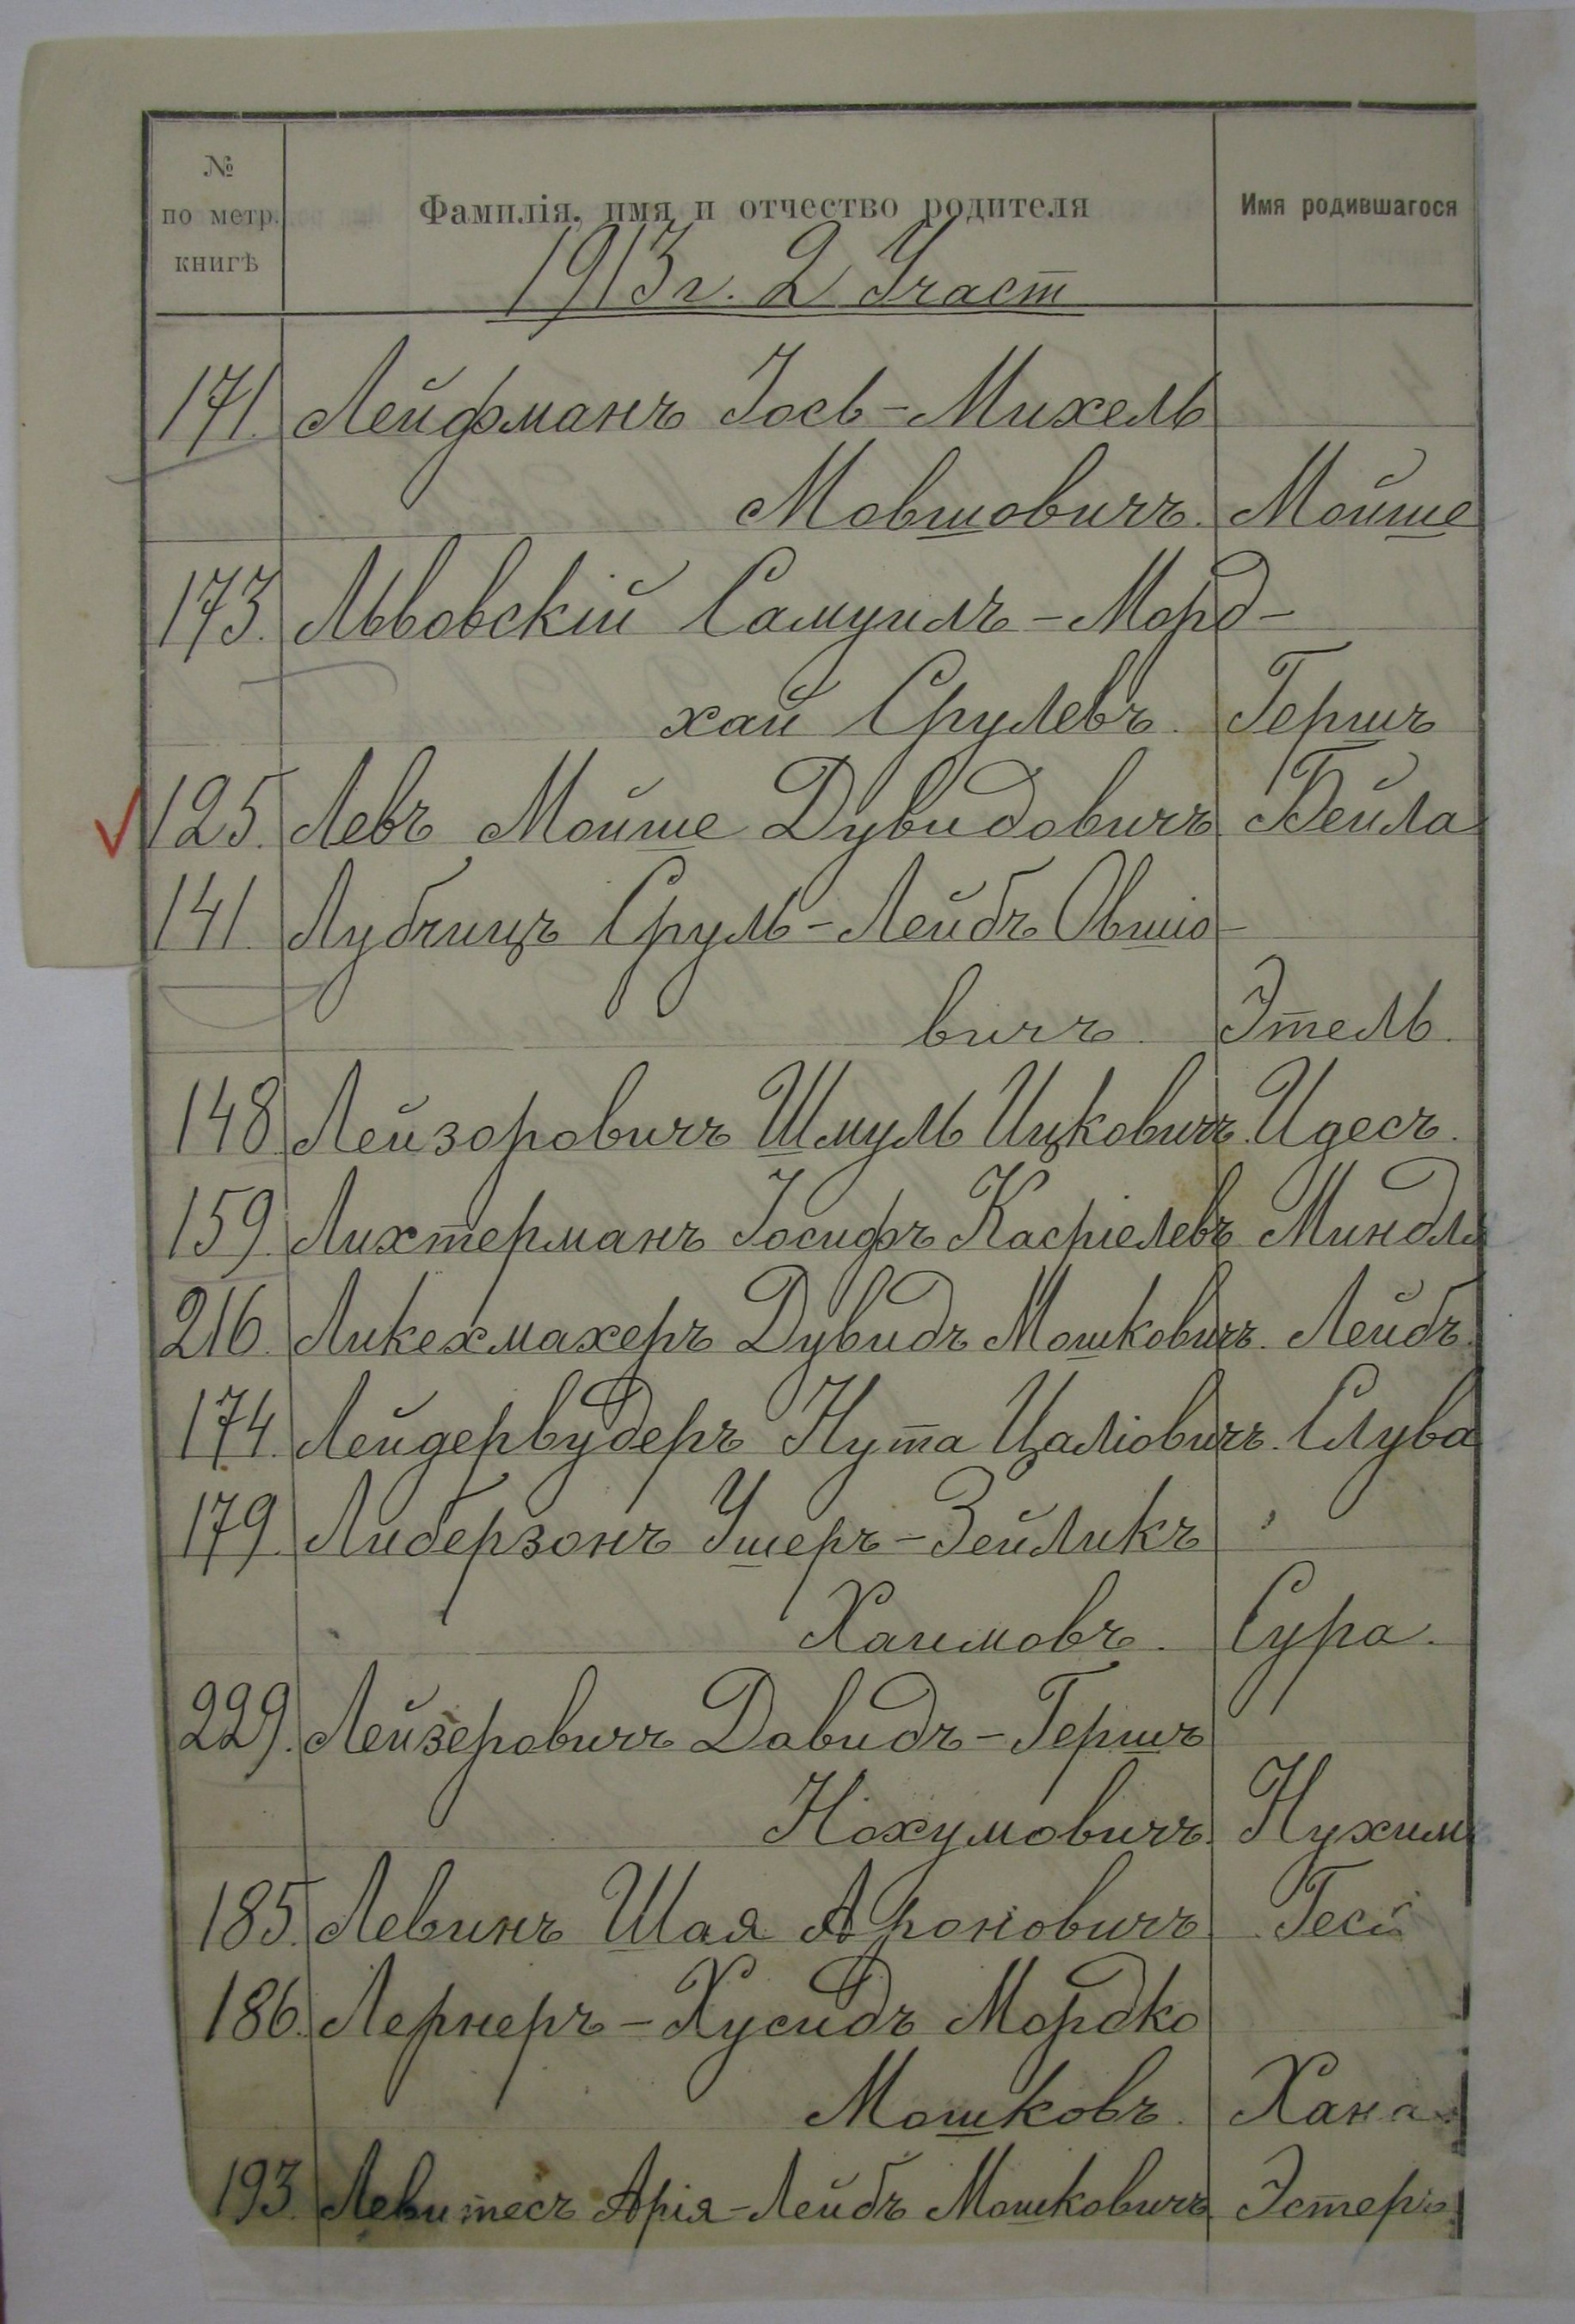 № по метр. книгѣ
Фамилія, имя и отчество родителя
Имя родившагося
1913 г. 2 Участ
171. Лейфманъ Іось-Михель
Мовшовичъ. Мойше
173. Львовскій Самуилъ-Морд-
хай Срулевъ. Гершъ
125. Левъ Мойше Дувидовичъ Бейла
141. Лубчицъ Сруль-Лейбъ Овшіо-
вичъ. Этель.
148 Лейзоровичъ Шмуль Ицковичъ. Идесъ.
159. Лихтерманъ Іосифъ Касріелевъ Миндля
216. Ликехмахеръ Дувидъ Мошковичъ. Лейбъ.
174. Лейдервудеръ Нута Цаліовичъ. Слува
179. Либерзонъ Ушеръ-Зейликъ
Хаимовъ. Сура.
229. Лейзеровичъ Давидъ-Гершъ
Нохумовичъ. Нухим
185. Левинъ Шая Ароновичъ
186. Лернеръ-Хусидъ Мордко
Мошковъ. Хана
193. Левитесъ Арія-Лейбъ Мошковичъ Эстеръ